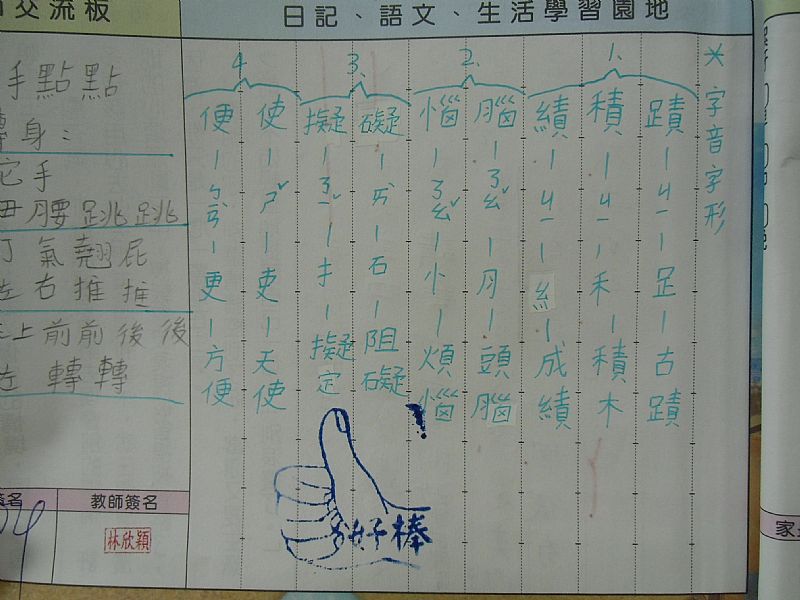 交流板
日記、語文、生活學習園地
＊字音字形
1.
蹟－ㄐㄧ－足－古蹟
積－ㄐㄧ－禾－積木
績－ㄐㄧ－糹－成績
2.
腦－ㄋㄠˇ－月－頭腦
惱－ㄋㄠˇ－忄－煩惱
3.
礙－ㄞˋ－石－阻礙
擬－ㄋㄧˇ－扌－擬定
4
使－ㄕˇ－吏－天使
便－ㄅㄧㄢˋ－更－方便
手點點
身：
手
腰跳跳
氣翹屁
右推推
上前前後後
轉轉
教師簽名
林欣穎
好棒